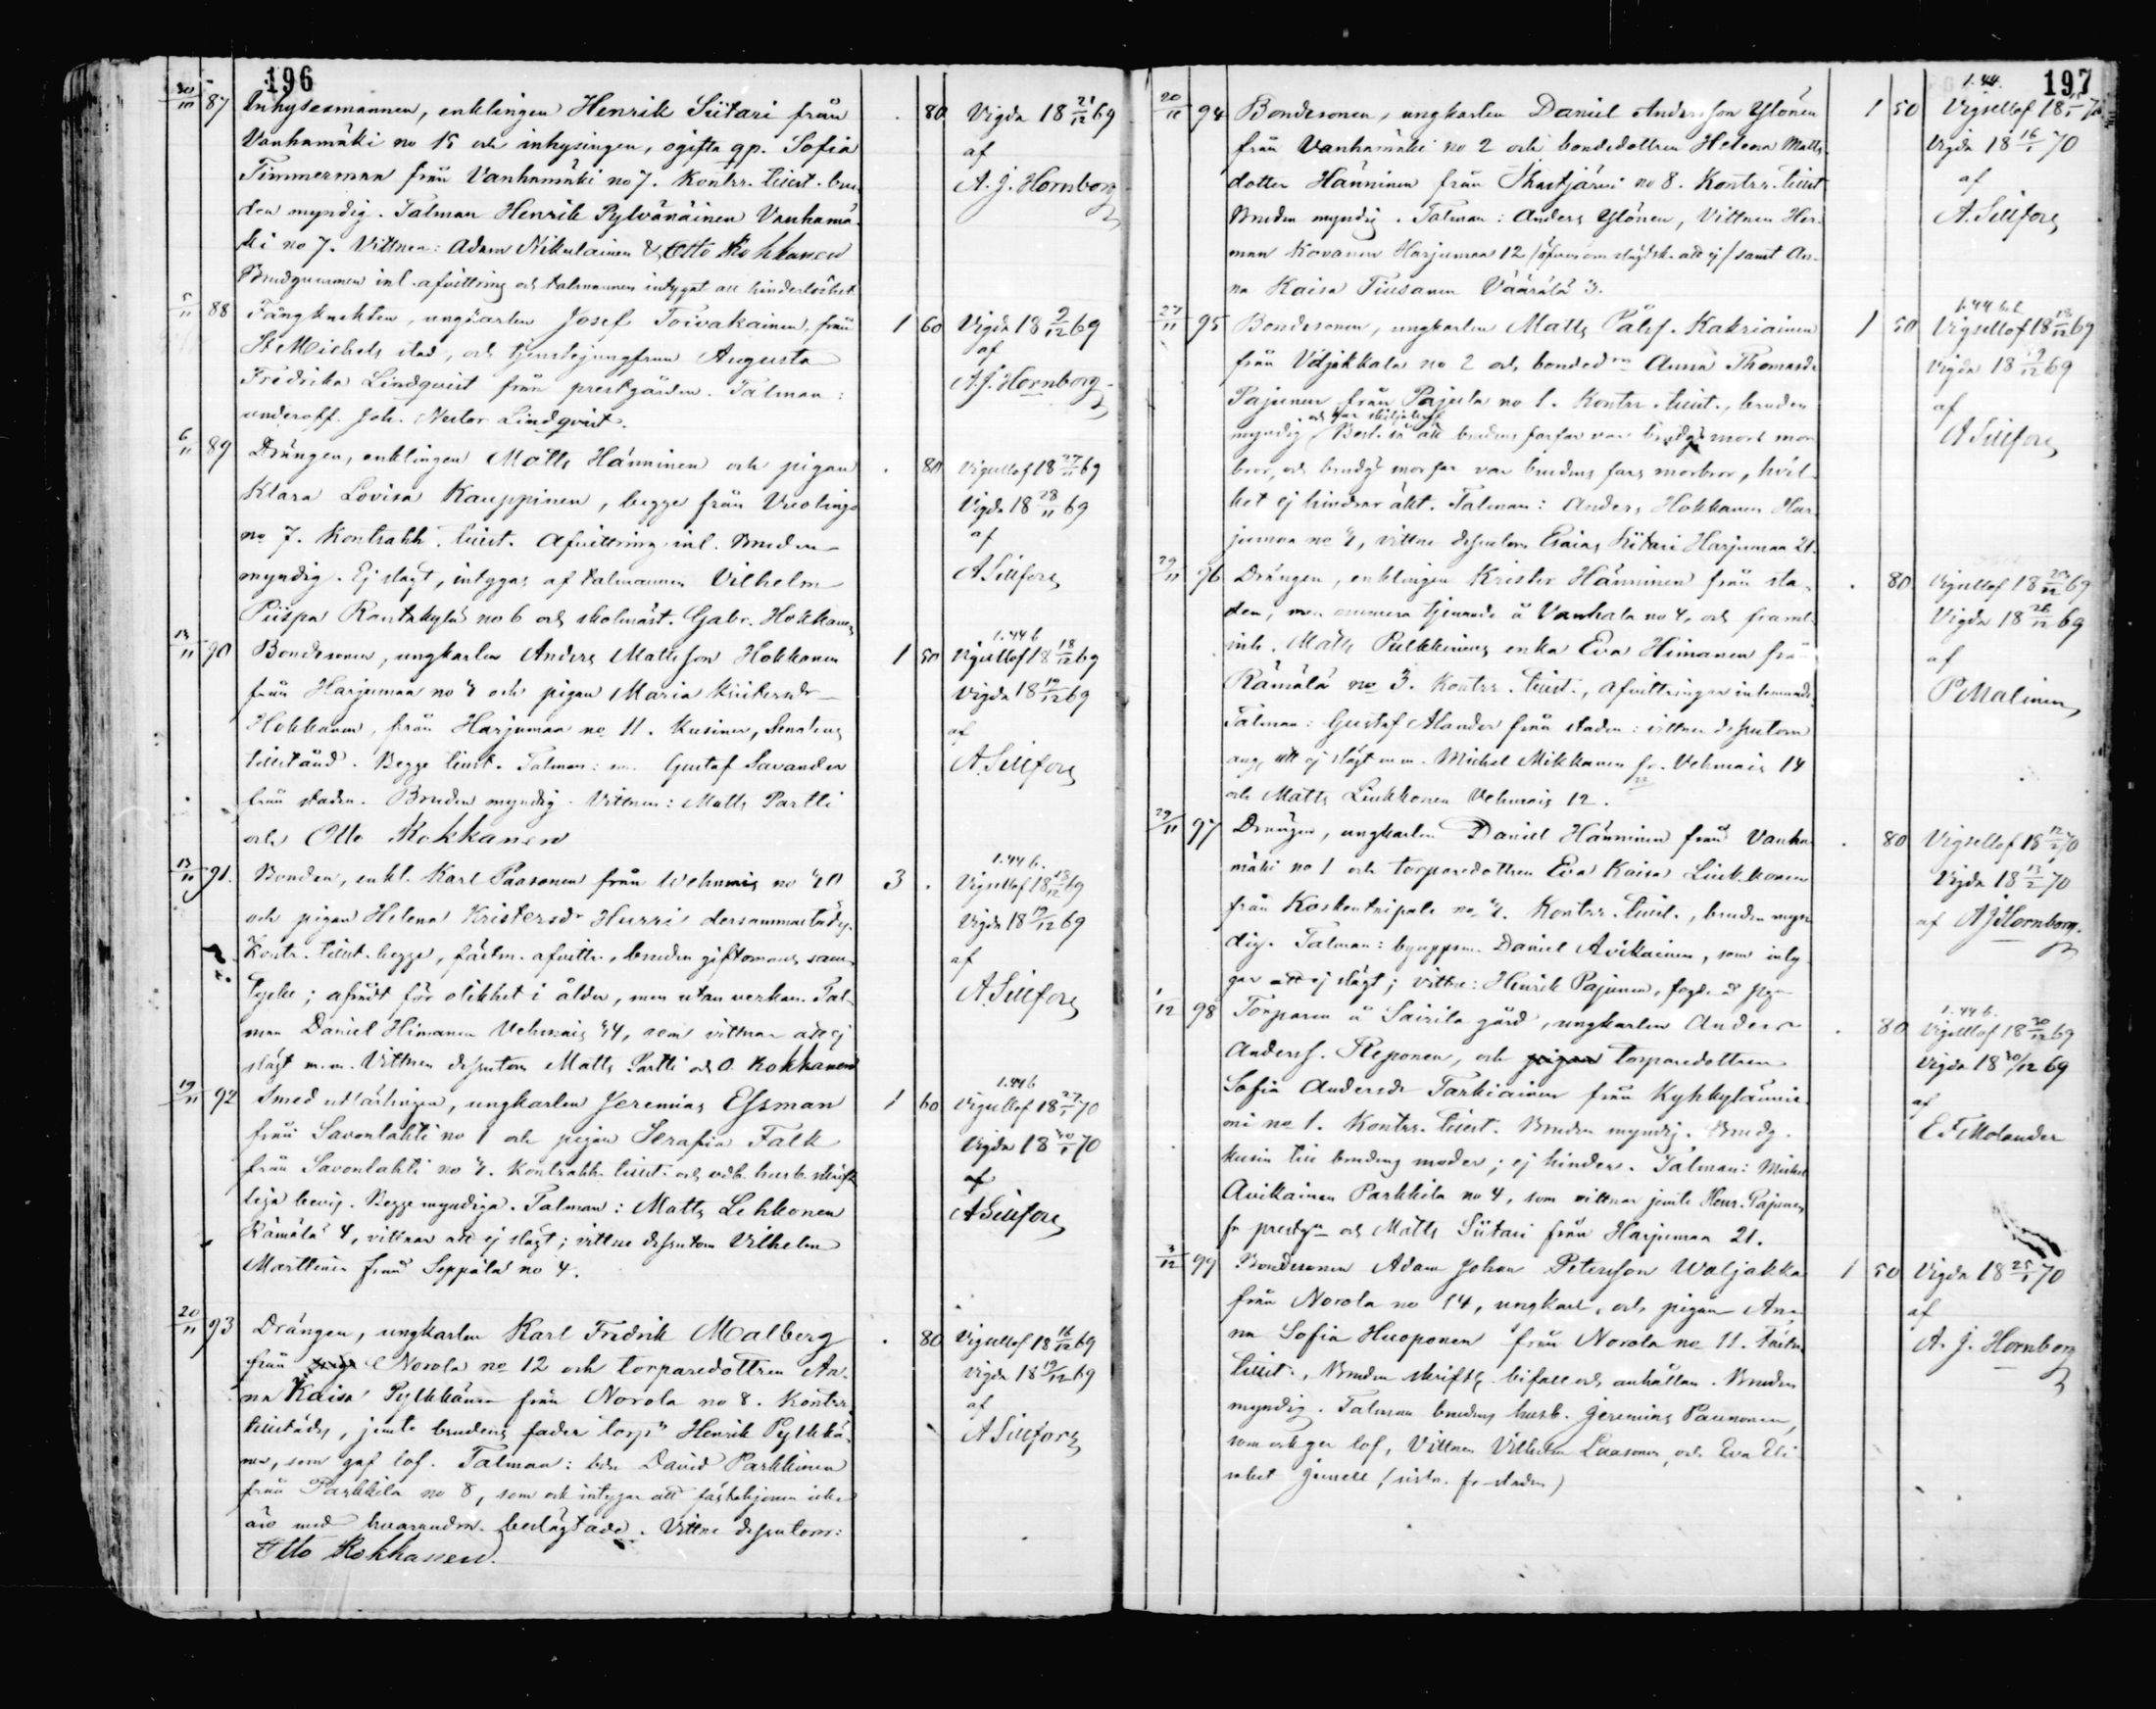 196
30/10 87 Inhysesmannen, enklingen Henrik Siitari från . 80 Vigda 18 21/12 69
Vanhamäki no 15 och inhysingen, ogifta qp. Sofia af
Timmerman från Vanhamäki no 7. Kontrr. tillst. bru- A. J. Hornborg
den myndig. Talman Henrik Pylvänäinen Vanhamä-
ki no 7. Vittnen: Adam Nikulainen & Otto Kokkanen
Brudgummen inl. afvittring och talmannen intygat all hinderlöshet
5/11 88 Fångknekten, ungkarlen Josef Toivakainen, från 1 60 Vigda 18 9/12 69
St Michels stad, och tjenstejungfrun Augusta af
Fredrika Lindqvist från prestgården. Talman: A. J. Hornborg
underoff. Joh. Nestor Lindqvist.
6/11 89 Drängen, enklingen Matts Hänninen och pigan . 80 Vigsellof 18 27/11 69
Klara Lovisa Kauppinen, begge från Vuolingo Vigda 18 28/11 69
no 7. Kontrahh. tillst. Afvittring inl. Bruden af
myndig. Ej slägt, intygas af talmannen Vilhelm A Sillfors
Piispa Rantakylä no 6 och skolmäst. Gabr. Hokkanen
13/11 90 Bondesonen, ungkarlen Anders Mattsson Hokkanen 1 50 1.44 b Vigsellof 18 18/12 69
från Harjumaa no 4 och pigan Maria Kristersdr Vigda 18 19/12 69
Hokkanen, från Harjumaa no 11. Kusiner, Senatens af
tillstånd. Begge tillst. Talman: Gustaf Savander A. Sillfors
från staden. Bruden myndig. Vittnen: Matts Partti
och Otto Kokkanen
13/11 91. Bonden, enkl. Karl Paasonen från Wehmais no 40 3 . 1.44 b. Vigsellof 18 18/12 69
och pigan Helena Kristersdr Hurri dersammastädes. Vigda 18 19/12 69
Kontr. tillst. begge, fästm. afvittr., bruden giftomans sam- af
tycke; afrådt för olikhet i ålder, men utan verkan. Tal- A. Sillfors
man Daniel Himanen Vehmais 44, som vittnar att ej
slägt m.m. Vittnen dessutom Matts Partti och O. Kokkanen
19/11 92 Smedutlärlingen, ungkarlen Jeremias Essman 1 60 1.44 b Vigsellof 18 27/1 70
från Savonlahti no 1 och pigan Serafia Falk Vigda 18 30/1 70
från Savonlahti no 4. Kontrahh. tillst. och vdb. husb. skrift- af
liga bevis. Begge myndiga. Talman: Matts Lehkonen A Sillfors
Rämälä 4, vittnar att ej slägt; vittne dessutom Vilhelm
Marttinen från Seppälä no 4.
20/11 93 Drängen, ungkarlen Karl Fredrik Malberg . 80 Vigsellof 18 16/12 69
från Norola no 12 och torparedottren An- Vigda 18 19/12 69
na Kaisa Pylkkänen från Norola no 8. Kontrr. af
tillstädes, jemte brudens fader torpn Henrik Pylkkä- A Sillfors
nen, som gaf lof. Talman: bdn David Parkkinen
från Parkkila no 8, som ock intygar att fästehjonen icke
äro med hvarandra beslägtade. Vittne dessutom:
Otto Kokkanen.
197
20/11 94 Bondesonen, ungkarlen Daniel Andersson Ylönen 1 50 1.44. Vigsellof 18 15/1 70
från Vanhamäki no 2 och bondedottren Helena Matts- Vigda 18 16/1 70
dotter Hänninen från Ihastjärvi no 8. Kontrr. tillst. af
Bruden myndig. Talman: Anders Ylönen, Vittnen Her- A. Sillfors
man Kovanen Harjumaa 12 samt An-
na Kaisa Tiusanen Väärälä 3.
27/11 95 Bondesonen, ungkarlen Matts Pålss. Kakriainen 1 50 1.44 Vigsellof 18 18/12 69
från Vdjakkala no 2 och bondedrn Anna Thomasdr Vigda 18 19/12 69
Pajunen från Pajula no 1. Kontrr. tillst., bruden af
myndig. Besl. så att brudens farfar var brudgs mors mor- A Sillfors
bror, och brudgs morfar var brudens fars morbror, hvil-
ket ej hindrar äkt. Talman: Anders Hokkanen Har-
jumaa no 4, vittne dessutom Esaias Siitari Harjumaa 21.
29/11 96 Drängen, enklingen Krister Hänninen från sta- . 80 Vigsellof 18 25/12 69
den, men numera tjenande å Vanhala no 4, och framl. Vigda 18 26/12 69
inh. Matts Pulkkinens enka Eva Himanen från af
Rämälä no 3. Kontrr. tillst., afvittringar inlemnade. P Malinen
Talman: Gustaf Alander från staden: vittnen dessutom
ang. att ej slägt m.m. Michel Mikkanen fr. Vehmais 14
och Matts Liukkonen Vehmais 12.
29/11 97 Drängen, ungkarlen Daniel Hänninen från Vanha- . 80 Vigsellof 18 12/2 70
mäki no 1 och torparedottren Eva Kaisa Liukkonen Vigda 18 13/2 70
från Koskentaipale no 4. Kontrr. tillst., bruden myn- af A J Hornborg.
dig. Talman: byuppsm. Daniel Avikainen, som inty-
gar att ej slägt; vittne: Henrik Pajunen,
1/12 98 Torparen å Sairila gård, ungkarlen Anders . 80 1.44 b. Vigsellof 18 30/12 69
Anderss. Reponen, och pigan torparedottren Vigda 18 30/12 69
Sofia Andersdr Tarkiainen från Kyhkylänni- af
emi no 1. Kontrr. tillst. Bruden myndig. Brudg. E F Molander
kusin till brudens moder; ej hinder. Talman: Michel
Avikainen Parkkila no 4, som vittnar jemte Henr. Pajunen
fr prestgn och Matts Siitari från Harjumaa 21.
3/12 99 Bondesonen Adam Johan Petersson Waljakka 1 50 Vigda 18 25/1 70
från Norola no 14, ungkarl, och pigan An- af
na Sofia Huoponen från Norola no 11. Fästm. A. J. Hornborg
tillst., Bruden skriftl. bifall och anhållan. Bruden
myndig. Talman brudens husb. Jeremias Paunonen,
som ock ger lof, Vittnen Vilhelm Laasonen och Eva Eli-
sabet Junell